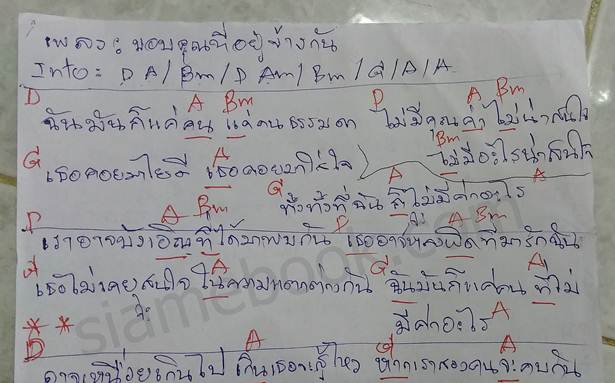 เพลง: ขอบคุณที่อยู่ข้างกัน
Into: D A / Bm / D Am / Bm / G / A / A
D A Bm D A Bm
ฉันมันก็แค่คน แค่คนธรรมดา ไม่มีคุณค่า ไม่น่าสนใจ
G A Bm A
เธอคอย เธอคอยมาใส่ใจ ไม่มีอะไรน่าสนใจ
G A
ทั้งทั้งที่ฉัน ก็ไม่มีค่าอะไร
D A Bm D A Bm
เราอาจบังเอิญ ที่ได้มาพบกัน เธออาจหลงผิด ที่มารักฉัน
G A G A
เธอไม่เคยสนใจ ในความแตกต่างกัน ฉันมันก็แค่คน ที่ไม่
มีค่าอะไร A
* *
D A G A
อาจเหนื่อยเกินไป เธอจะรู้ไหม หากเราสองคนจะคบกัน
siamebook.com